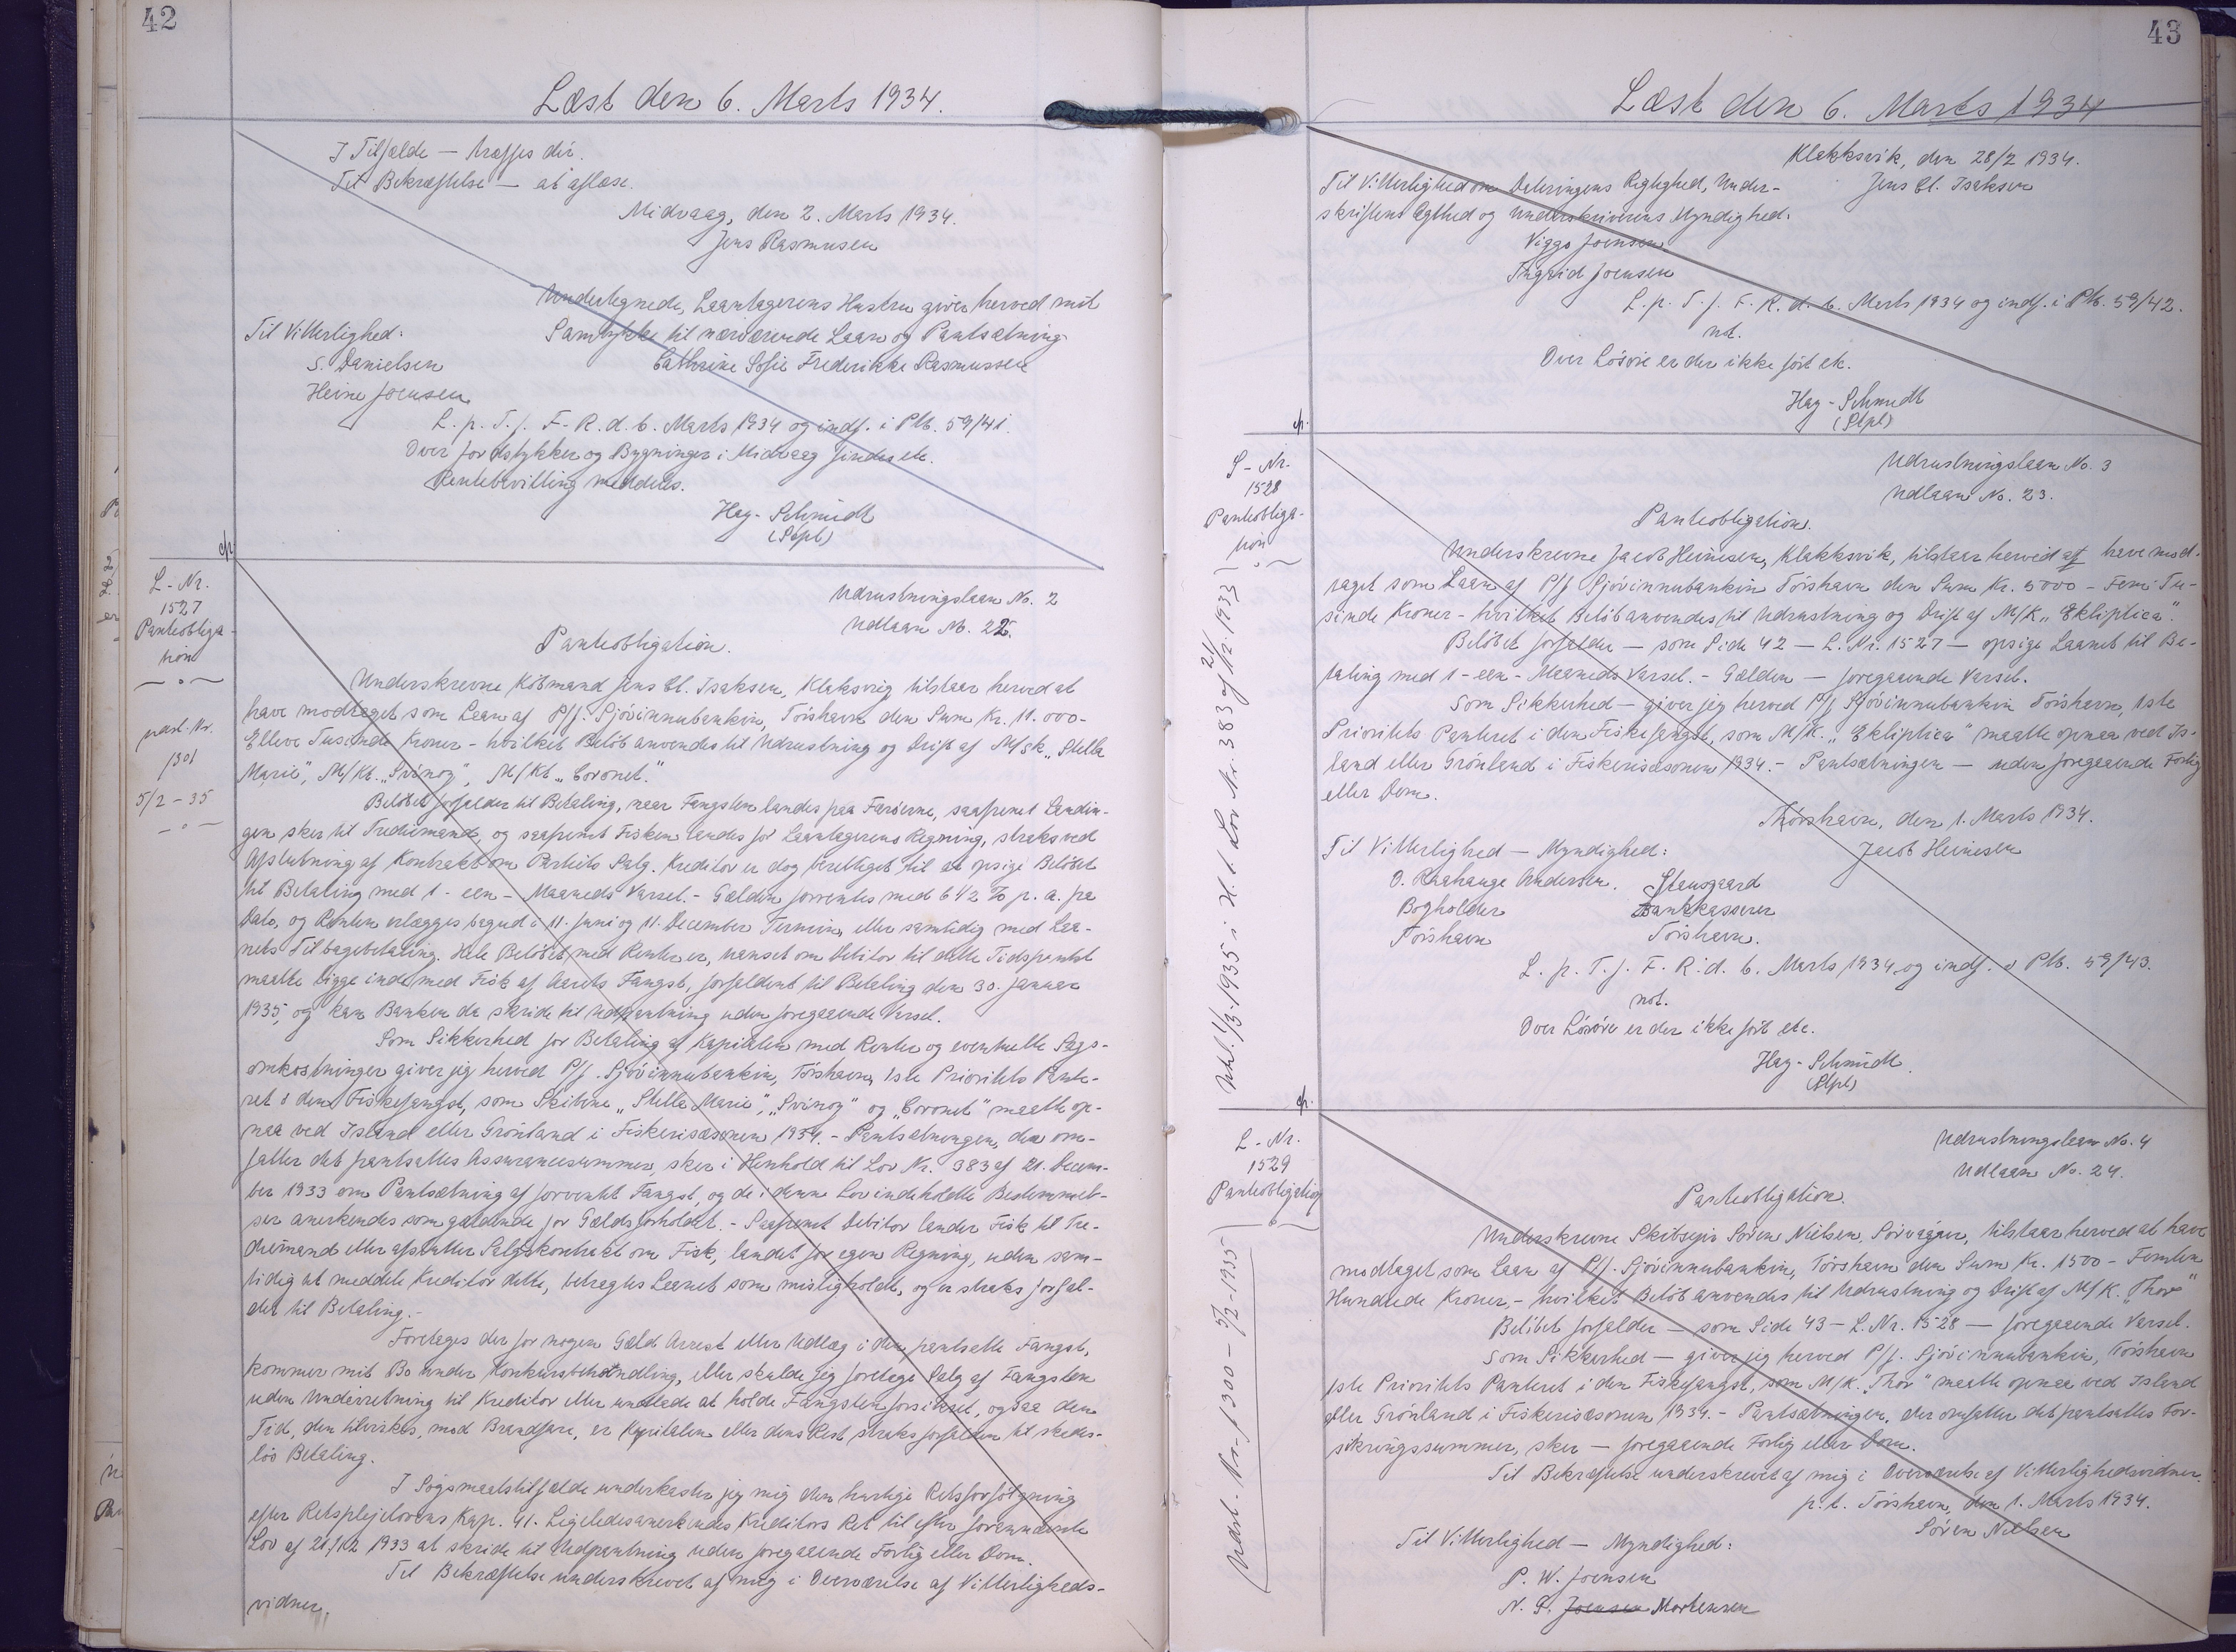 42
Læst den 6. Marts 1934.
I Tilfælde — træffes dér.
Til Bekræftelse — at aflæse.
Midvaag, den 2. Marts 1934.
Jens Rasmusen
Undertegnede, Laantagerens Hustru giver herved mit
Til Vitterlighed:
Samtykke til nærværende Laan og Pantsætning
S. Danielsen
Cathrine Sofie Frederikke Rasmussen
Heine Joensen
L. p. T. f. F. R. d. 6. Marts 1934 og indf. i Ptb. 59/41.
Over Jordstykker og Bygninger i Midvaag findes etc.
Rentebevilling meddeles.
Hay-Schmidt
(Stpl)
L-Nr.
1527
Panteobliga-
tion
navl. Nr.
1301
5/2 - 35
Udrustningslaan No. 2
Udlaan No. 22.
Panteobligation.
Underskrevne Købmand Jens Cl. Isaksen, Klaksvig tilstaar herved at
have modtaget som Laan af P/f. Sjóvinnubankin, Tórshavn den Sum Kr. 11.000-
Elleve Tusinde Kroner - hvilket Beløb anvendes til Udrustning og Drift af M/Sk. „Stella
Marie", M/Kt. „Svinoy", M/Kt „Coronet."
Beløbet forfalder til Betaling, naar Fangsten landes paa Færøerne, saafremt Landin-
gen sker til Trediemand, og saafremt Fisken landes for Laantagerens Regning, straks ved
Afslutning af Kontrakt om Partiets Salg. Kreditor er dog berettiget til at opsige Beløbet
til Betaling med 1 - een - Maaneds Varsel. - Gælden forrentes med 6 1/2 % p. a. fra
Dato, og Renten erlægges bagud i 11. Juni og 11. December Termin, eller samtidig med Laa-
nets Tilbagebetaling. Hele Beløbet med Renter er, uanset om Debitor til dette Tidspunkt
maatte ligge inde med Fisk af Aarets Fangst, forfaldent til Betaling den 30. Januar
1935, og kan Banken da skride til Udpantning uden foregaaende Varsel.
Som Sikkerhed for Betaling af Kapitalen med Renter og eventuelle Sags-
omkostninger giver jeg herved P/f. Sjóvinnubankin, Tórshavn, 1ste Prioritets Pante-
ret i den Fiskefangst, som Skibene „Stella Marie", „Svinoy" og „Coronet" maatte op-
naa ved Island eller Grönland i Fiskerisæsonen 1934. - Pantsætningen, der om-
fatter det pantsattes Assurancesummer, sker i Henhold til Lov Nr. 383 af 21. Decem-
ber 1933 om Pantsætning af forventet Fangst, og de i denne Lov indeholdte Bestemmel-
ser anerkendes som gældende for Gældsforholdet. - Saafremt Debitor lander Fisk til Tre-
diemand eller afslutter Salgskontrakt om Fisk, landet for egen Regning, uden sam-
tidig at meddele Kreditor dette, betragtes Laanet som misligholdt, og er straks forfal-
det til Betaling. -
Foretages der for nogen Gæld Arrest eller Udlæg i den pantsatte Fangst,
kommer mit Bo under Konkursbehandling, eller skulde jeg foretage Salg af Fangsten
uden Underretning til Kreditor eller undlade at holde Fangsten forsikret, ogsaa den
Tid, den tilvirkes, mod Brandfare, er Kapitalen eller dens Rest straks forfalden til skades-
løs Betaling.
I Søgsmaalstilfælde underkaster jeg mig den hurtige Retsforfølgning
efter Retsplejelovens Kap. 41. Ligeledes anerkendes Kreditors Ret til efter forannævnte
Lov af 21/12 1933 at skride til Udpantning uden foregaaende Forlig eller Dom.
Til Bekræftelse underskrevet af mig i Overværelse af Vitterligheds-
vidner.
43
Læst den 6. Marts 1934
Klakksvik, den 28/2 1934.
Til Vitterlighed om Dateringens Rigtighed, Under-
Jens Cl. Isaksen
skriftens Ægthed og Underskriverens Myndighed:
Viggo Joensen
Ingrid Joensen
L. p. T. f. F. R. d. 6. Marts 1934 og indf. i Ptb. 59/42.
not.
Over Løsøre er der ikke ført etc.
Hay-Schmidt
(Stpl)
L-Nr.
1528
Panteobliga-
tion
Udsl. 1/3-1935 i H. t. Lov Nr. 383 af 21/12 1933)
Udrustningslaan No. 3
Udlaan No. 23.
Panteobligation.
Underskrevne Jacob Heinesen, Klakksvik, tilstaar herved at have mod-
taget som Laan af P/f Sjóvinnubankin Tórshavn den Sum Kr. 5000 - Fem Tu-
sinde Kroner - hvilket Beløb anvendes til Udrustning og Drift af M/K „Ekliptica".
Beløbet forfalder — som Side 42 — L. Nr. 1527 — opsige Laanet til Be-
taling med 1 - een - Maaneds Varsel. - Gælden — foregaaende Varsel.
Som Sikkerhed — giver jeg herved P/f Sjóvinnubankin Tórshavn, 1ste
Prioritets Panteret i den Fiskefangst, som M/K. „Ekliptica" maatte opnaa ved Is-
land eller Grönland i Fiskerisæsonen 1934. - Pantsætningen — uden foregaaende Forlig
eller Dom.
Tórshavn, den 1. Marts 1934.
Til Vitterlighed — Myndighed:
Jacob Heinesen
O. Raahauge Andersen.
Stensgaard
Bogholder
Bankkasserer
Tórshavn
Tórshavn.
L. p. T. f. F. R. d. 6. Marts 1934, og indf. i Ptb. 59/43.
not.
Over Løsøre er der ikke ført etc.
Hay-Schmidt
(Stpl)
L-Nr.
1529
Panteobligation
Udsl. Nr. 1300 - 5/2-1935)
Udrustningslaan No. 4
Udlaan No. 24.
Panteobligation.
Underskrevne Skibsejer Søren Nielsen, Sørvaagur, tilstaar herved at have
modtaget som Laan af P/f. Sjóvinnubankin, Tórshavn den Sum Kr. 1500 - Femten
Hundrede Kroner, - hvilket Beløb anvendes til Udrustning og Drift af M/K. „Thor"
Beløbet forfalder — som Side 43 — L. Nr. 1528 — foregaaende Varsel.
Som Sikkerhed — giver jeg herved P/f. Sjóvinnubankin, Tórshavn
1ste Prioritets Panteret i den Fiskefangst, som M/K. „Thor" maatte opnaa ved Island
eller Grönland i Fiskerisæsonen 1934. - Pantsætningen, der omfatter det pantsattes For-
sikringssummer, sker — foregaaende Forlig eller Dom.
Til Bekræftelse underskrevet af mig i Overværelse af Vitterlighedsvidner.
p. t. Tórshavn, den 1. Marts 1934.
Søren Nielsen
Til Vitterlighed — Myndighed:
P. W. Joensen
N. P. Joensen Mortensen